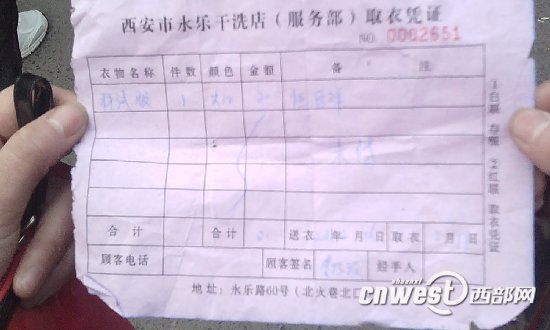 西安市永乐干洗店（服务部）取衣凭证
NO. 0002651
衣物名称 件数 颜色 金额 备 注
1
合计 合计 送衣 年 月 日 取衣 月 日
顾客电话 顾客签名 经手人
地址：永乐路60号（北火巷北口
①白联 存根 ②红联 取衣凭证
cnwest西部网